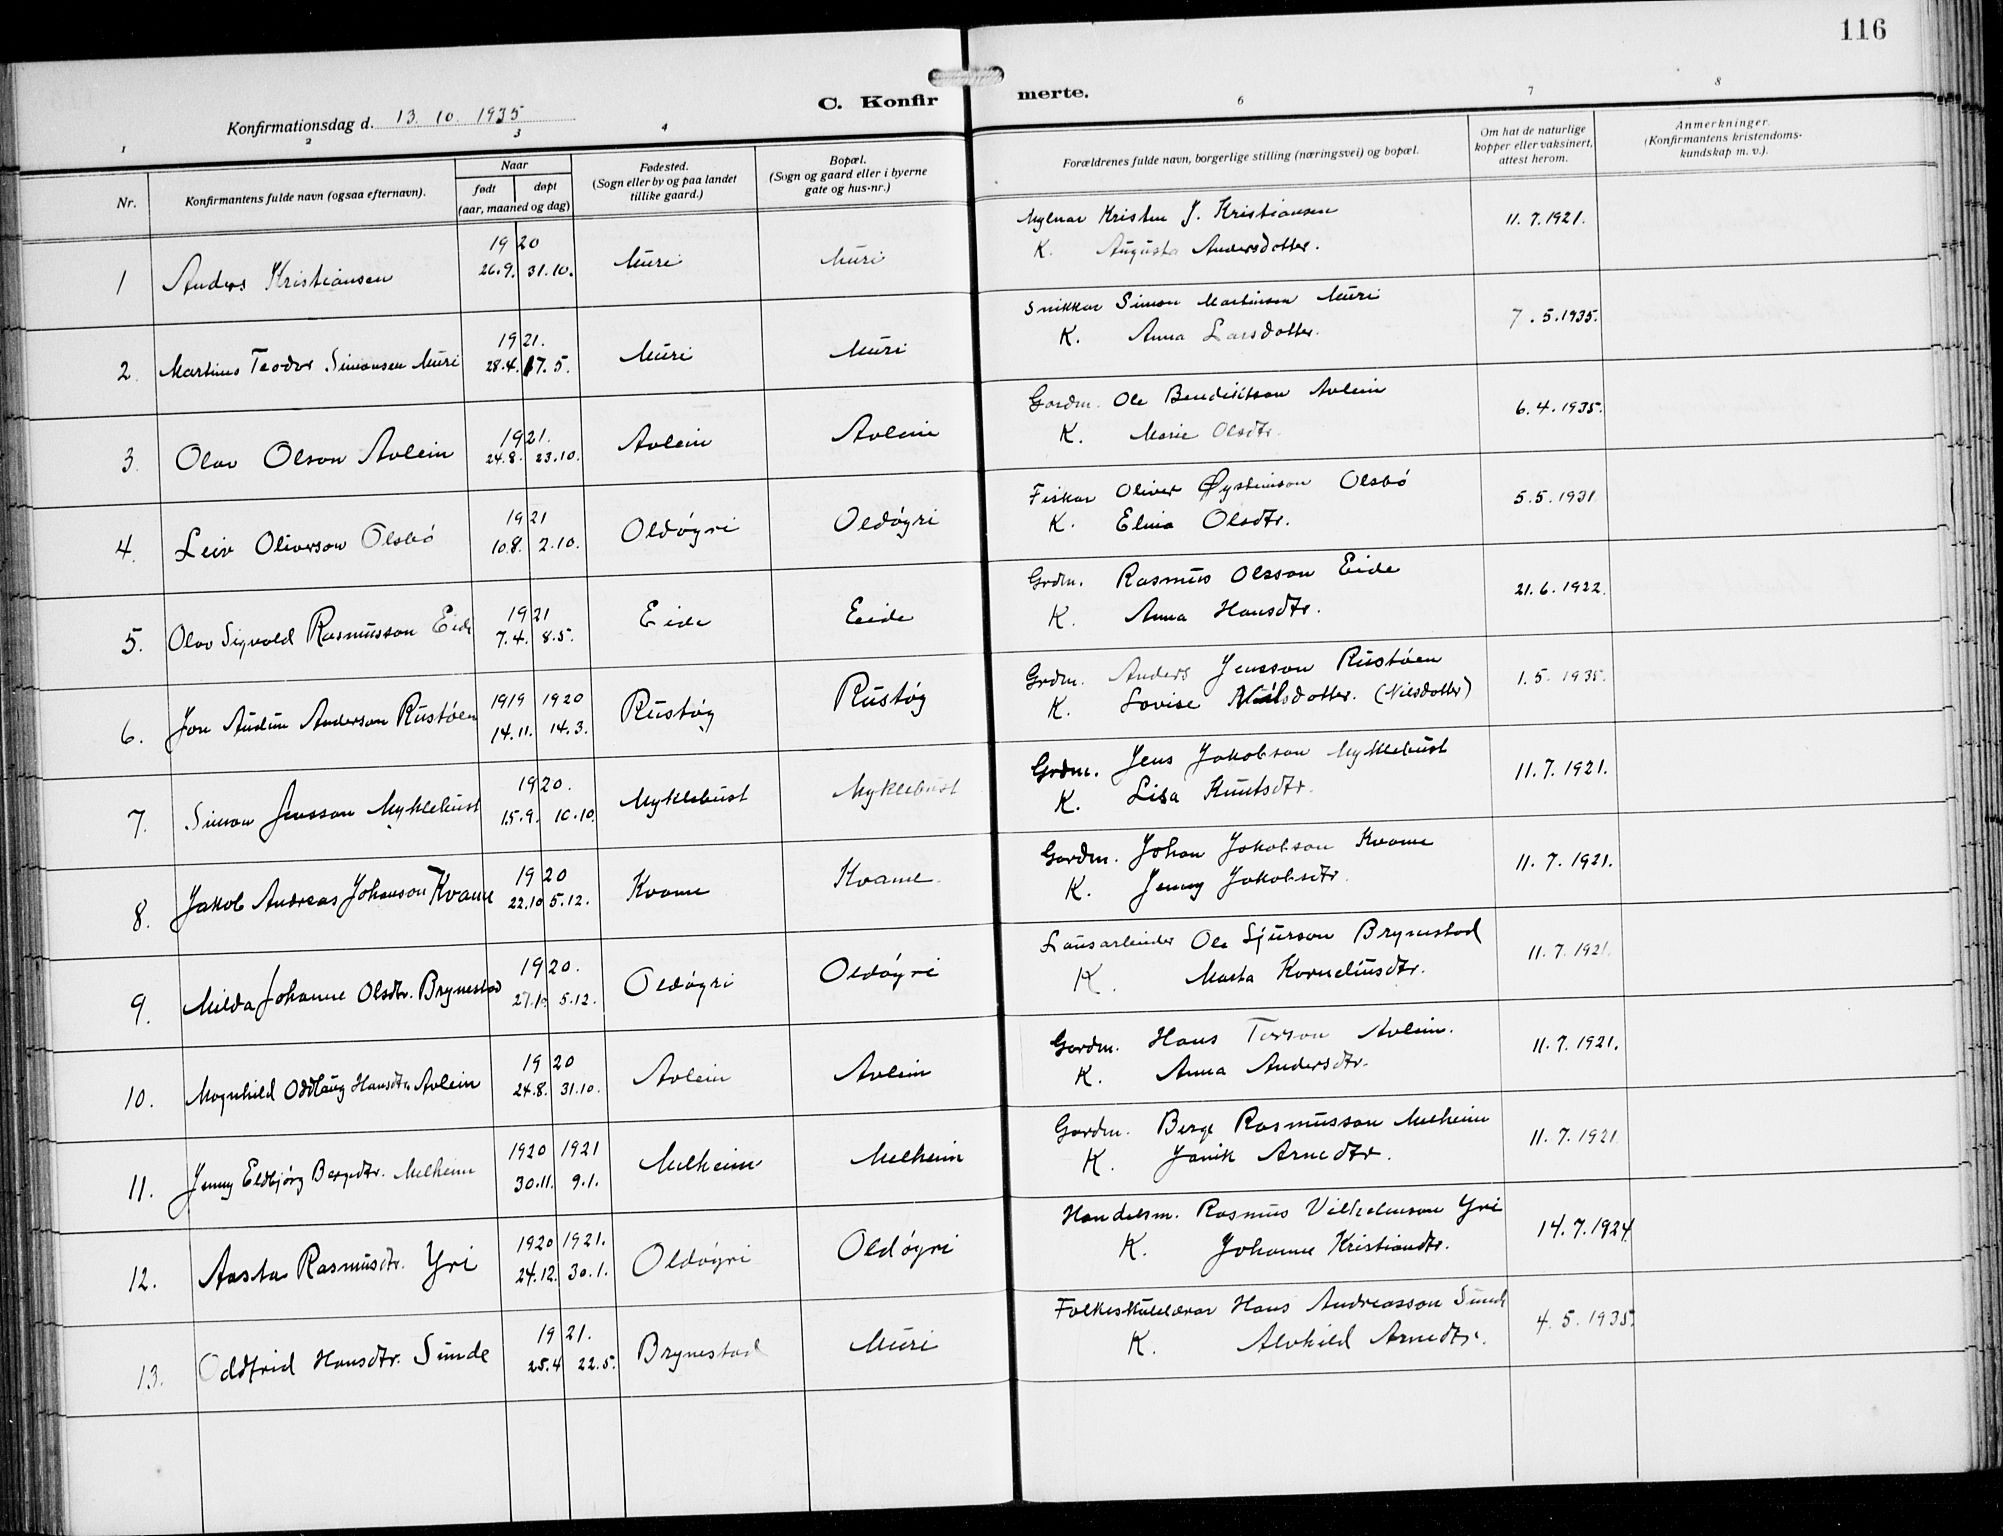 116
C. Konfirmerte.
Konfirmationsdag d. 13. 10. 1935
1 2 3 4 6 7 8
Nr.
Konfirmantens fulde navn (ogsaa efternavn).
Naar
født døpt
(aar, maaned og dag)
Fødested.
(Sogn eller by og paa landet
tillike gaard.)
Bopæl.
(Sogn og gaard eller i byerne
gate og hus-nr.)
Forældrenes fulde navn, borgerlige stilling (næringsvei) og bopæl.
Om hat de naturlige
kopper eller vaksinert,
attest herom.
Anmerkninger.
(Konfirmantens kristendoms-
kundskap m. v.).
1 Anders Kristiansen 1920 26.9. 31.10. Muri Muri
Mylnar Kristen J. Kristiansen 11.7.1921.
K. Augusta Andersdotter.
2. Martinus Teodor Simonsen Muri 1921. 28.4. 17.5. Muri Muri
Snikkar Simon Martinson Muri 7.5.1935.
K. Anna Larsdotter.
3. Olav Olson Avlein 1921. 24.8. 23.10. Avlein Avlein
Gardm. Ole Bendiktson Avlein 6.4.1935.
K. Marie Olsdtr.
4. Leiv Oliverson Olsbö 1921 10.8. 2.10. Oldöyri Oldöyri
Fiskar Oliver Øysteinson Olsbö 5.5.1931
K. Elina Olsdtr.
5. Olav Sigvald Rasmusson Eide 1921 7.4. 8.5. Eide Eeide
Grdm. Rasmus Olsson Eide 21.6.1922.
K. Anna Hansdtr.
6. Jon Audun Anderson Rustöen 1919 14.11. 1920 14.3. Rustöy Rustöy
Grdm. Anders Jensson Rustöen 1.5.1935.
K. Lovise Nilsdotter. (Nilsdotter)
7. Simon Jensson Myklebust 1920. 15.9. 10.10. Myklebust Myklebust
Grdm. Jens Jakobson Myklebust 11.7.1921.
K. Lisa Knutsdtr.
8. Jakob Andreas Johanson Kvame 1920 22.10 5.12. Kvame Kvame
Gardm. Johan Jakobson Kvame 11.7.1921.
K. Jenny Jakobsdtr.
9. Milda Johanne Olsdtr. Brynestad 1920. 27.10 5.12. Oldöyri Oldöyri
Lausarbeider Ole Sjurson Brynestad 11.7.1921.
K. Marta Korneliusdtr.
10. Magnhild Oddlaug Hansdtr. Avlein 1920 24.8. 31.10. Avlein Avlein
Gardm. Hans Torson Avlein. 11.7.1921.
K. Anna Andersdtr.
11. Jenny Eldbjörg Bergedtr. Melheim 1920 30.11. 1921 9.1. Melheim Melheim
Gardm. Berge Rasmusson Melheim 11.7.1921.
K. Janik Arnedtr.
12. Aasta Rasmusdtr. Yri 1920 24.12. 1921. 30.1. Oldöyri Oldöyri
Handelsm. Rasmus Vilhelmson Yri 14.7.1924
K. Johanne Kristiandtr.
13. Oddfrid Hansdtr. Sunde 1921. 25.4 22.5. Brynestad Muri
Folkeskulelærar Hans Andreasson Sunde 4.5.1935.
K. Alvhild Arnedtr.